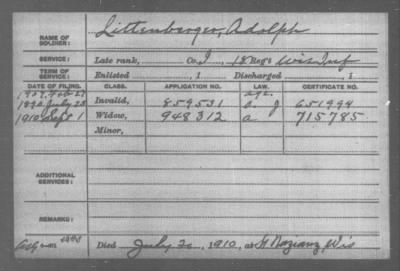 NAME OF SOLDIER: Littenberger, Adolph
SERVICE: Late rank, Co. I, 18 Reg't Wis Inf
TERM OF SERVICE: Enlisted , 1 Discharged , 1
DATE OF FILING. CLASS. APPLICATION NO. LAW. CERTIFICATE NO.
1907, Feb 27 age.
1890 July 28 Invalid, 859531 a. J 651994
1910 Sept 1 Widow, 948312 a 715785
Minor,
ADDITIONAL SERVICES:
REMARKS:
Died July 20, 1910, at St Nazianz, Wis